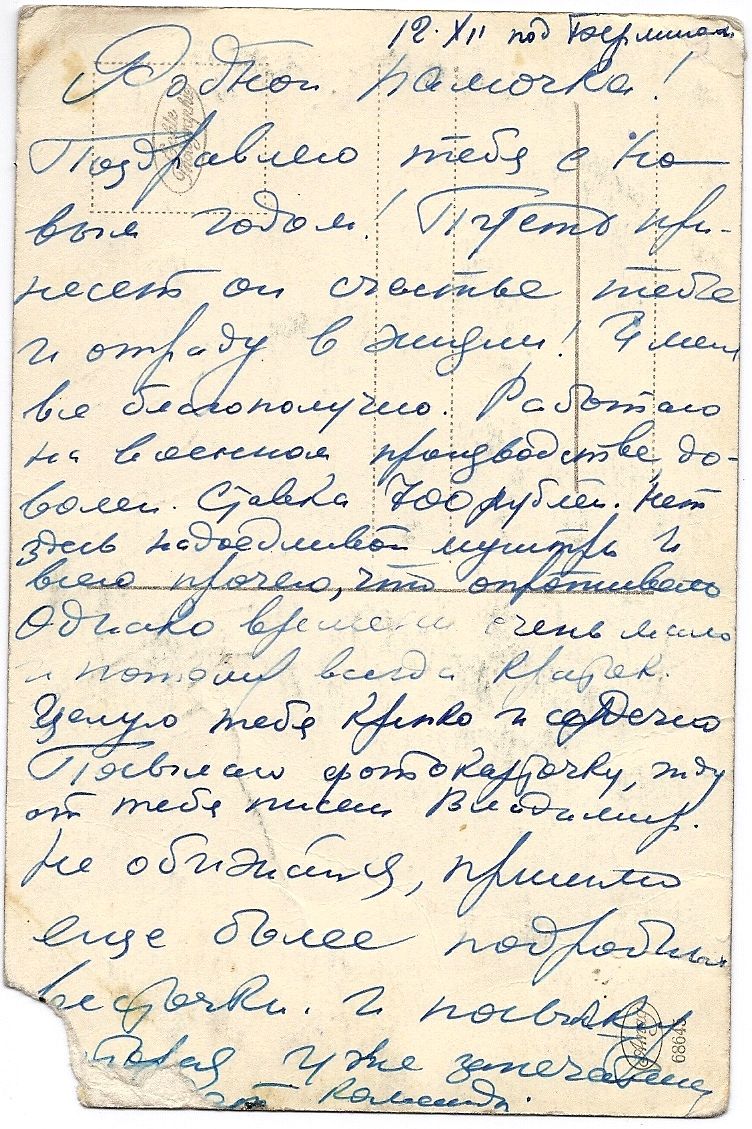 12. XII под Берлином
Родной Мамочка!
Поздравляю тебя с Но-
вым годом! Пусть при-
несет он счастье тебе
и отраду в жизни! У меня
все благополучно. Работаю
на военном производстве, до-
волен. Ставка 700 рублей. Нет
здесь надоедливой муштры и
всего прочего, что опротивело
Однако времени очень мало
и потому всегда краток.
Целую тебя крепко и сердечно
Посылаю фотокарточку, жду
от тебя писем Владимир.
Не обижайся, пришлю
еще более подробные
весточки. и посылку
которая уже запечатана
Echte Photographie
Amag
68643